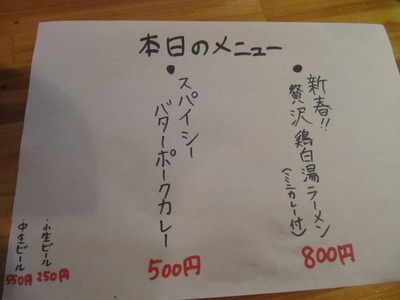 本日のメニュー
● 新春!!
贅沢鶏白湯ラーメン
(ミニカレー付)
800円
● スパイシー
バターポークカレー
500円
・小生ビール
250円
・中生ビール
550円